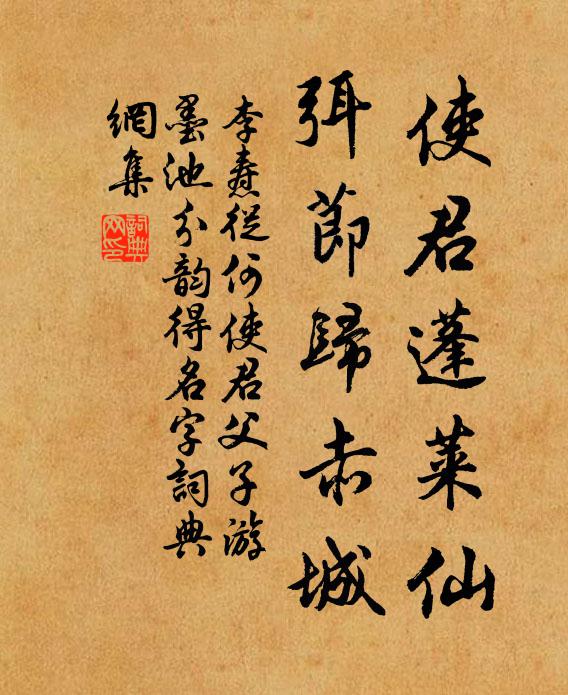 使君蓬萊仙
弭節歸赤城
李燾從何使君父子游
墨池分韵得名字詞典
網集
詞典
网印